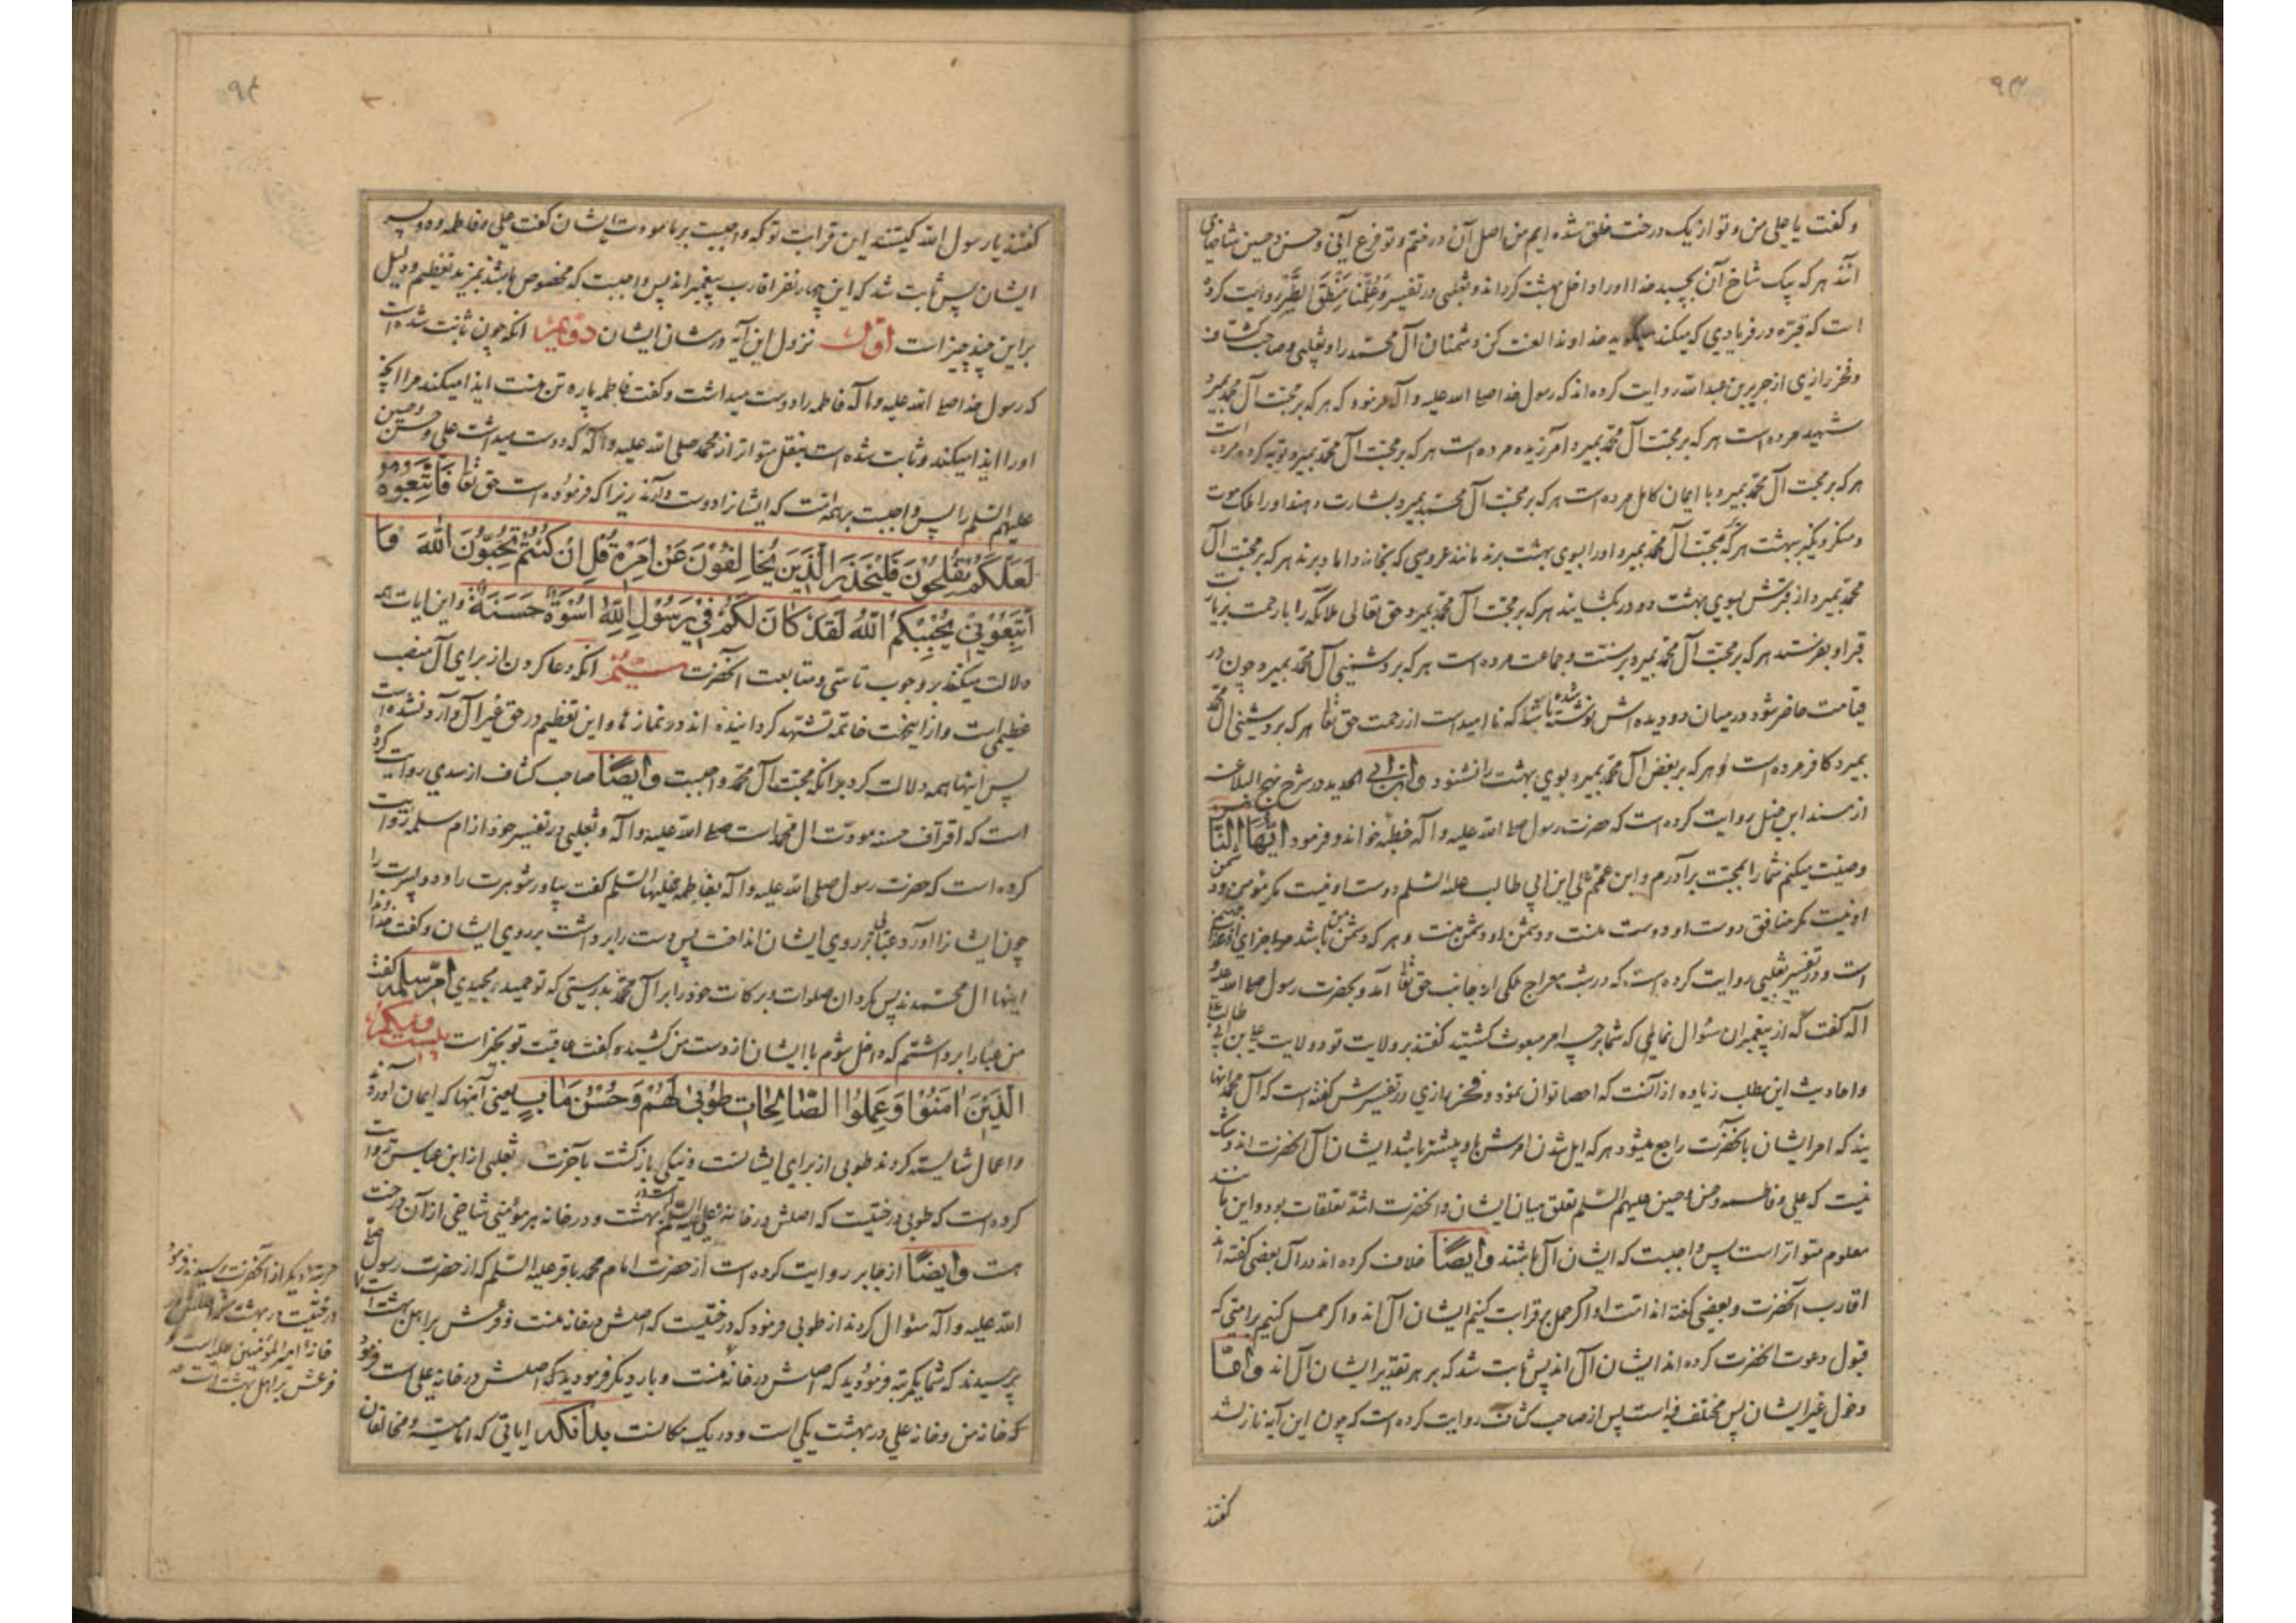 ۹۳
و گفت یا علی من و تو از یک درخت خلق شده ایم من اصل آن درختم و تو فرع آنی و حسن و حسین شاخهای
آنند هر که بیک شاخ آن بچسبد خدا او را داخل بهشت کرداند و ثعلبی در تفسیر وَعُلِّمْنا مَنْطِقَ الطَّیْرِ روایت کرده
است که قبره در فریادی که میکند میگوید خداوندا لعنت کن دشمنان آل محمد را و ثعلبی و صاحب کشاف
و فخر رازی از جریر بن عبد الله روایت کرده اند که رسول خدا صلی الله علیه و آله فرمود که هر که بر محبت آل محمد بمیرد
شهید مرده است هر که بر محبت آل محمد بمیرد آمرزیده مرده است هر که بر محبت آل محمد بمیرد توبه کرده مرده است
هر که بر محبت آل محمد بمیرد با ایمان کامل مرده است هر که بر محبت آل محمد بمیرد بشارت دهند او را ملک موت
و منکر و نکیر ببهشت هر که بر محبت آل محمد بمیرد او را بسوی بهشت برند مانند عروسی که بخانه داماد برند هر که بر محبت آل
محمد بمیرد از قبرش بسوی بهشت دو در بکشایند هر که بر محبت آل محمد بمیرد حق تعالی ملائکه را با رحمت بزیارت
قبر او بفرستد هر که بر محبت آل محمد بمیرد بر سنت و جماعت مرده است هر که بر دشمنی آل محمد بمیرد چون در
قیامت حاضر شود در میان دو دیده اش نوشته شده باشد که نا امید است از رحمت حق تعا هر که بر دشمنی آل محمد
بمیرد کافر مرده است و هر که بر بغض آل محمد بمیرد بوی بهشت را نشنود و ابن ابی الحدید در شرح نهج البلاغه
از مسند ابن حنبل روایت کرده است که حضرت رسول صلی الله علیه و آله خطبه خواند و فرمود ایها الناس
وصیت میکنم شما را بمحبت برادرم و ابن عمم علی ابن ابی طالب علیه السلم دوست او نیست مکر مؤمن و دشمن
او نیست مکر منافق دوست او دوست منست و دشمن او دشمن منست و هر که دشمن من باشد خدا جزای او
است و در تفسیر ثعلبی روایت کرده است که در شب معراج ملکی از جانب حق تعا آمد و بحضرت رسول صلی الله علیه و
آله گفت که از پیغمبران سؤال نمای که شما بر چه امر مبعوث کشتید گفتند بر ولایت تو و ولایت علی بن ابی طالب
و احادیث این مطلب زیاده از آنست که احصا توان نمود و فخر رازی در تفسیرش گفته است که آل محمد آنها
یند که امر ایشان بآنحضرت راجع میشود هر که ایل شدن امرش باو بیشتر باشد ایشان آل آنحضرت اند و شک
نیست که علی و فاطمه و حسن و حسین علیهم السلم تعلق میان ایشان و آنحضرت اشد تعلقات بود و این مانند
معلوم متواتر است پس واجبست که ایشان آل باشند و ایضا خلاف کرده اند در آل بعضی گفته اند
اقارب آنحضرت و بعضی گفته اند امت او اگر حمل بر قرابت کنیم ایشان آل اند و اگر حمل کنیم بر امتی که
قبول دعوت آنحضرت کرده اند ایشان آل اند پس ثابت شد که بر هر تقدیر ایشان آل اند و اما
دخول غیر ایشان پس مختلف فیه است پس از صاحب کشاف روایت کرده است که چون این آیه نازل شد
گفتند
۹۴
گفتند یا رسول الله کیستند این قرابت تو که واجبست بر ما مودت ایشان گفت علی و فاطمه و دو پسر
ایشان پس ثابت شد که این چهار نفر اقارب پیغمبر اند پس واجبست که مخصوص باشند بمزید تعظیم و دلیل
بر این چند چیز است اول نزول این آیه در شان ایشان دویم آنکه چون ثابت شده است
که رسول خدا صلی الله علیه و آله فاطمه را دوست میداشت و گفت فاطمه پاره تن منست ایذا میکند مرا آنچه
او را ایذا میکند و ثابت شده است بنقل متواتر از محمد صلی الله علیه و آله که دوست میداشت علی و حسن و حسین
علیهم السلم را پس واجبست بر همه امت که ایشانرا دوست دارند زیرا که فرموده است حق تعا فَاتَّبِعُوهُ
لَعَلَّکُمْ تُفْلِحُونَ فَلْیَحْذَرِ الَّذِینَ یُخَالِفُونَ عَنْ اَمْرِهِ قُلْ اِنْ کُنْتُمْ تُحِبُّونَ اللّهَ فَا
تَّبِعُونِی یُحْبِبْکُمُ اللّهُ لَقَدْ کَانَ لَکُمْ فِی رَسُولِ اللّهِ اُسْوَةٌ حَسَنَةٌ و این ایات همه
دلالت میکند بر وجوب تاسی و متابعت آنحضرت سیّم آنکه دعا کردن از برای آل منصب
عظیمی است و از اینجهت خاتمه تشهد کردانیده اند در نمازها و این تعظیم در حق غیر آل وارد نشده است
پس اینها همه دلالت کرد بر آنکه محبت آل محمد واجبست و ایضا صاحب کشاف از سدی روایت کرده
است که اقتراف حسنه مودت آل محمد است صلی الله علیه و آله و ثعلبی در تفسیر خود از ام سلمه روایت
کرده است که حضرت رسول صلی الله علیه و آله بفاطمه علیها السلم گفت بیاور شوهرت را و دو پسرت را
چون ایشانرا آورد عبائی بر روی ایشان انداخت پس دست را برداشت بر روی ایشان و گفت خداوندا
اینها آل محمدند پس بکردان صلوات و برکات خود را بر آل محمد بدرستی که تو حمید و مجیدی ام سلمه گفت
من عبا را برداشتم که داخل شوم با ایشان از دست من کشید و گفت عاقبت تو بخیر است بیست و یکم
الَّذِینَ امَنُوا وَ عَمِلُوا الصَّالِحَاتِ طُوبی لَهُمْ وَ حُسْنُ مَابٍ یعنی آنها که ایمان آورده
و اعمال شایسته کردند طوبی از برای ایشانست و نیکی بازگشت بآخرت ثعلبی از ابن عباس روایت
کرده است که طوبی درختیست که اصلش در خانه علی علیه السلم است در بهشت و در خانه هر مؤمنی شاخی از آن درخت
هست و ایضا از جابر روایت کرده است از حضرت امام محمد باقر علیه السلم که از حضرت رسول صلی
الله علیه و آله سئوال کردند از طوبی فرمود که درختیست که اصلش در خانه منست و فرعش بر اهل بهشت است
پرسیدند که شما یکمرتبه فرمودید که اصلش در خانه منست و بار دیگر فرمودید که اصلش در خانه علی است فرمود
که خانه من و خانه علی در بهشت یکی است و در یک مکانست بدانکه ایاتی که امامیه و مخالفان
مرتبه دیگر از آنحضرت پرسیدند فرمود
درختیست در بهشت که اصلش در
خانه امیر المؤمنین علیه است و
فرعش بر اهل بهشت است